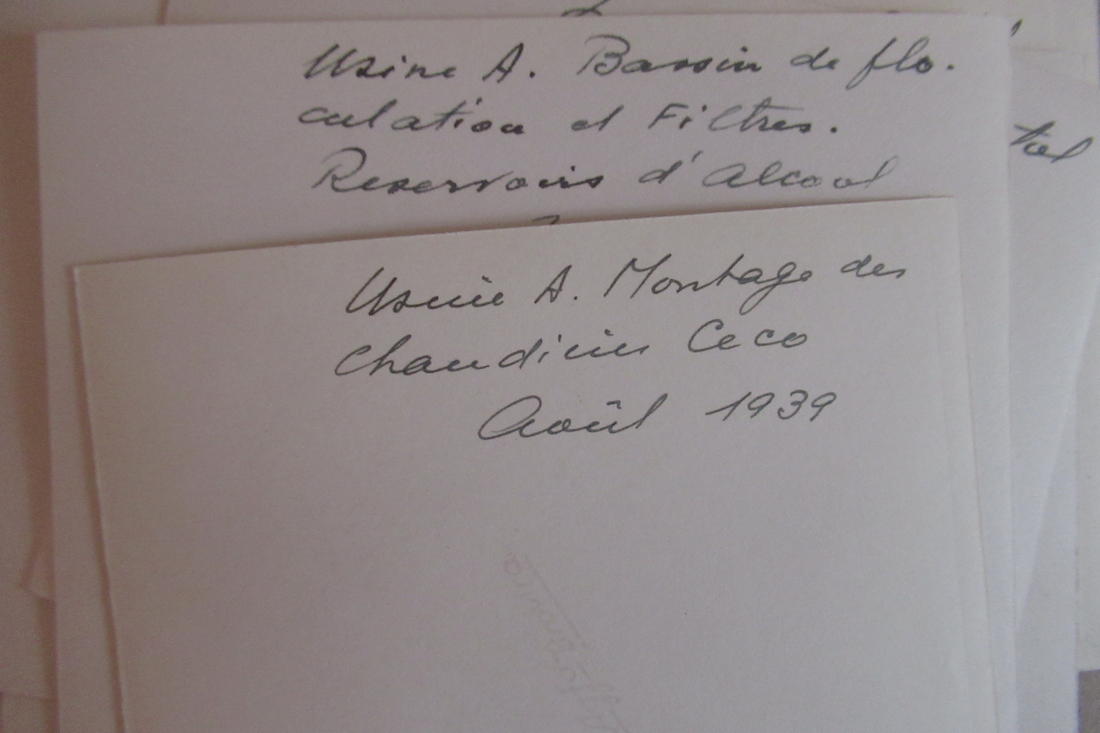 Usine A. Bassin de flo.
culation et Filtres.
Reservoirs d'Alcool
tiel
Usine A. Montage des
Chaudières Ceco
Août 1939